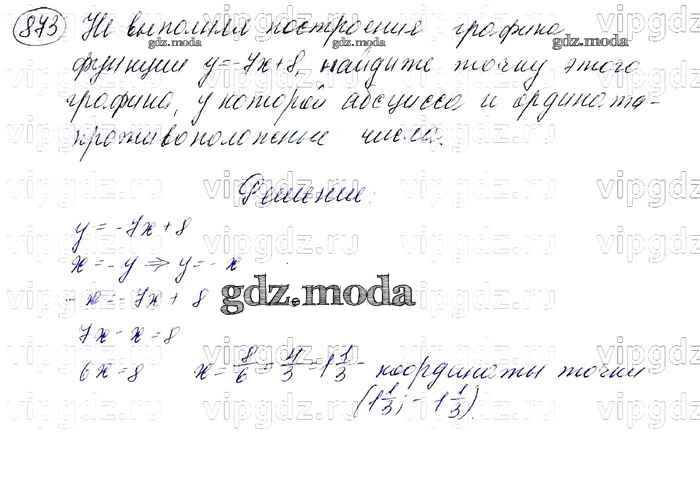 873 Не выполняя построения графика
функции y=-7x+8, найдите точку этого
графика, у которой абсцисса и ордината-
противоположные числа.
Решение:
y=-7x+8
x=-y⇒y=-x
-x=-7x+8
gdz.moda
7x-x=8
6x=8 x=8/6=4/3=1 1/3- координаты точки
(1 1/3;-1 1/3).